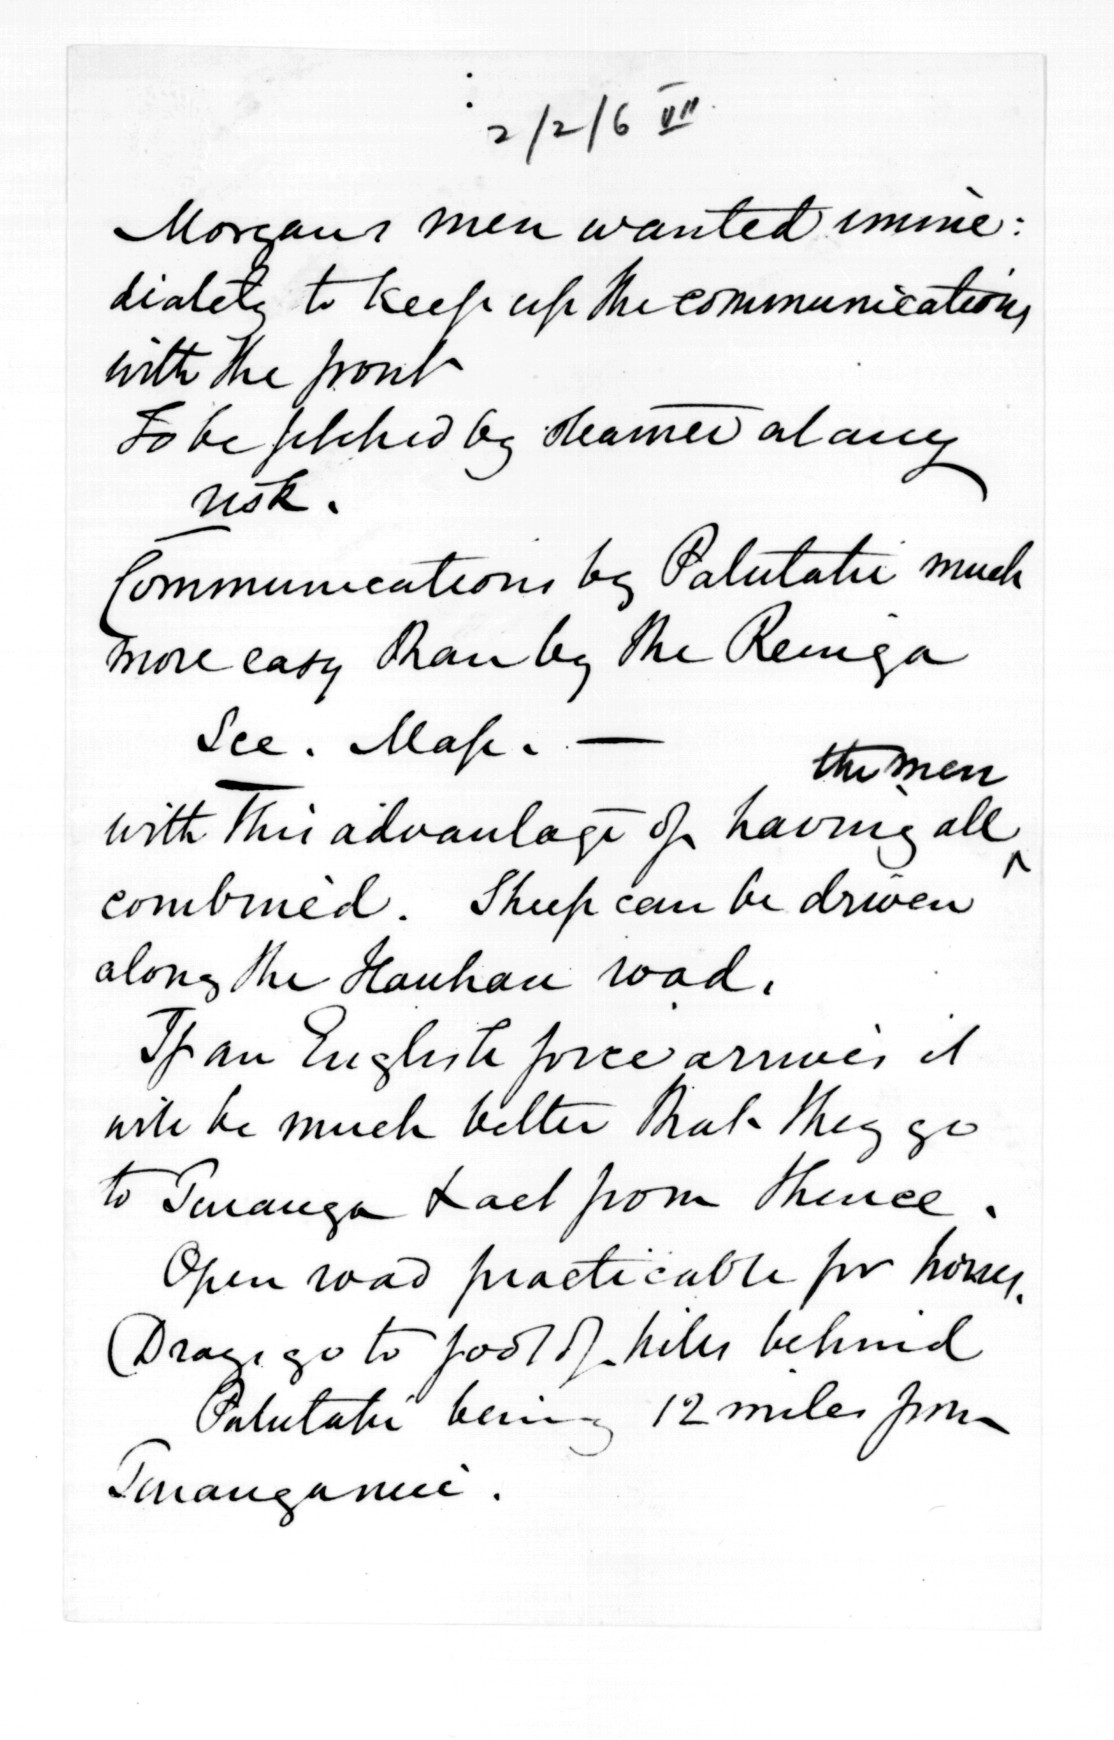 2/2/6 VII
Morgans men wanted imme:
diately to keep up the communications
with the front
To be fetched by steamer at any
risk.
Communications by Patutahi much
more easy than by the Reinga
See. Map. —
the men
with this advantage of having all ^
combined. Sheep can be driven
along the Hauhau road.
If an English force arrives it
will be much better that they go
to Turanga & act from thence.
Open road practicable for horses.
(Drays go to foot of hills behind
Patutahi being 12 miles from
Turanganui.